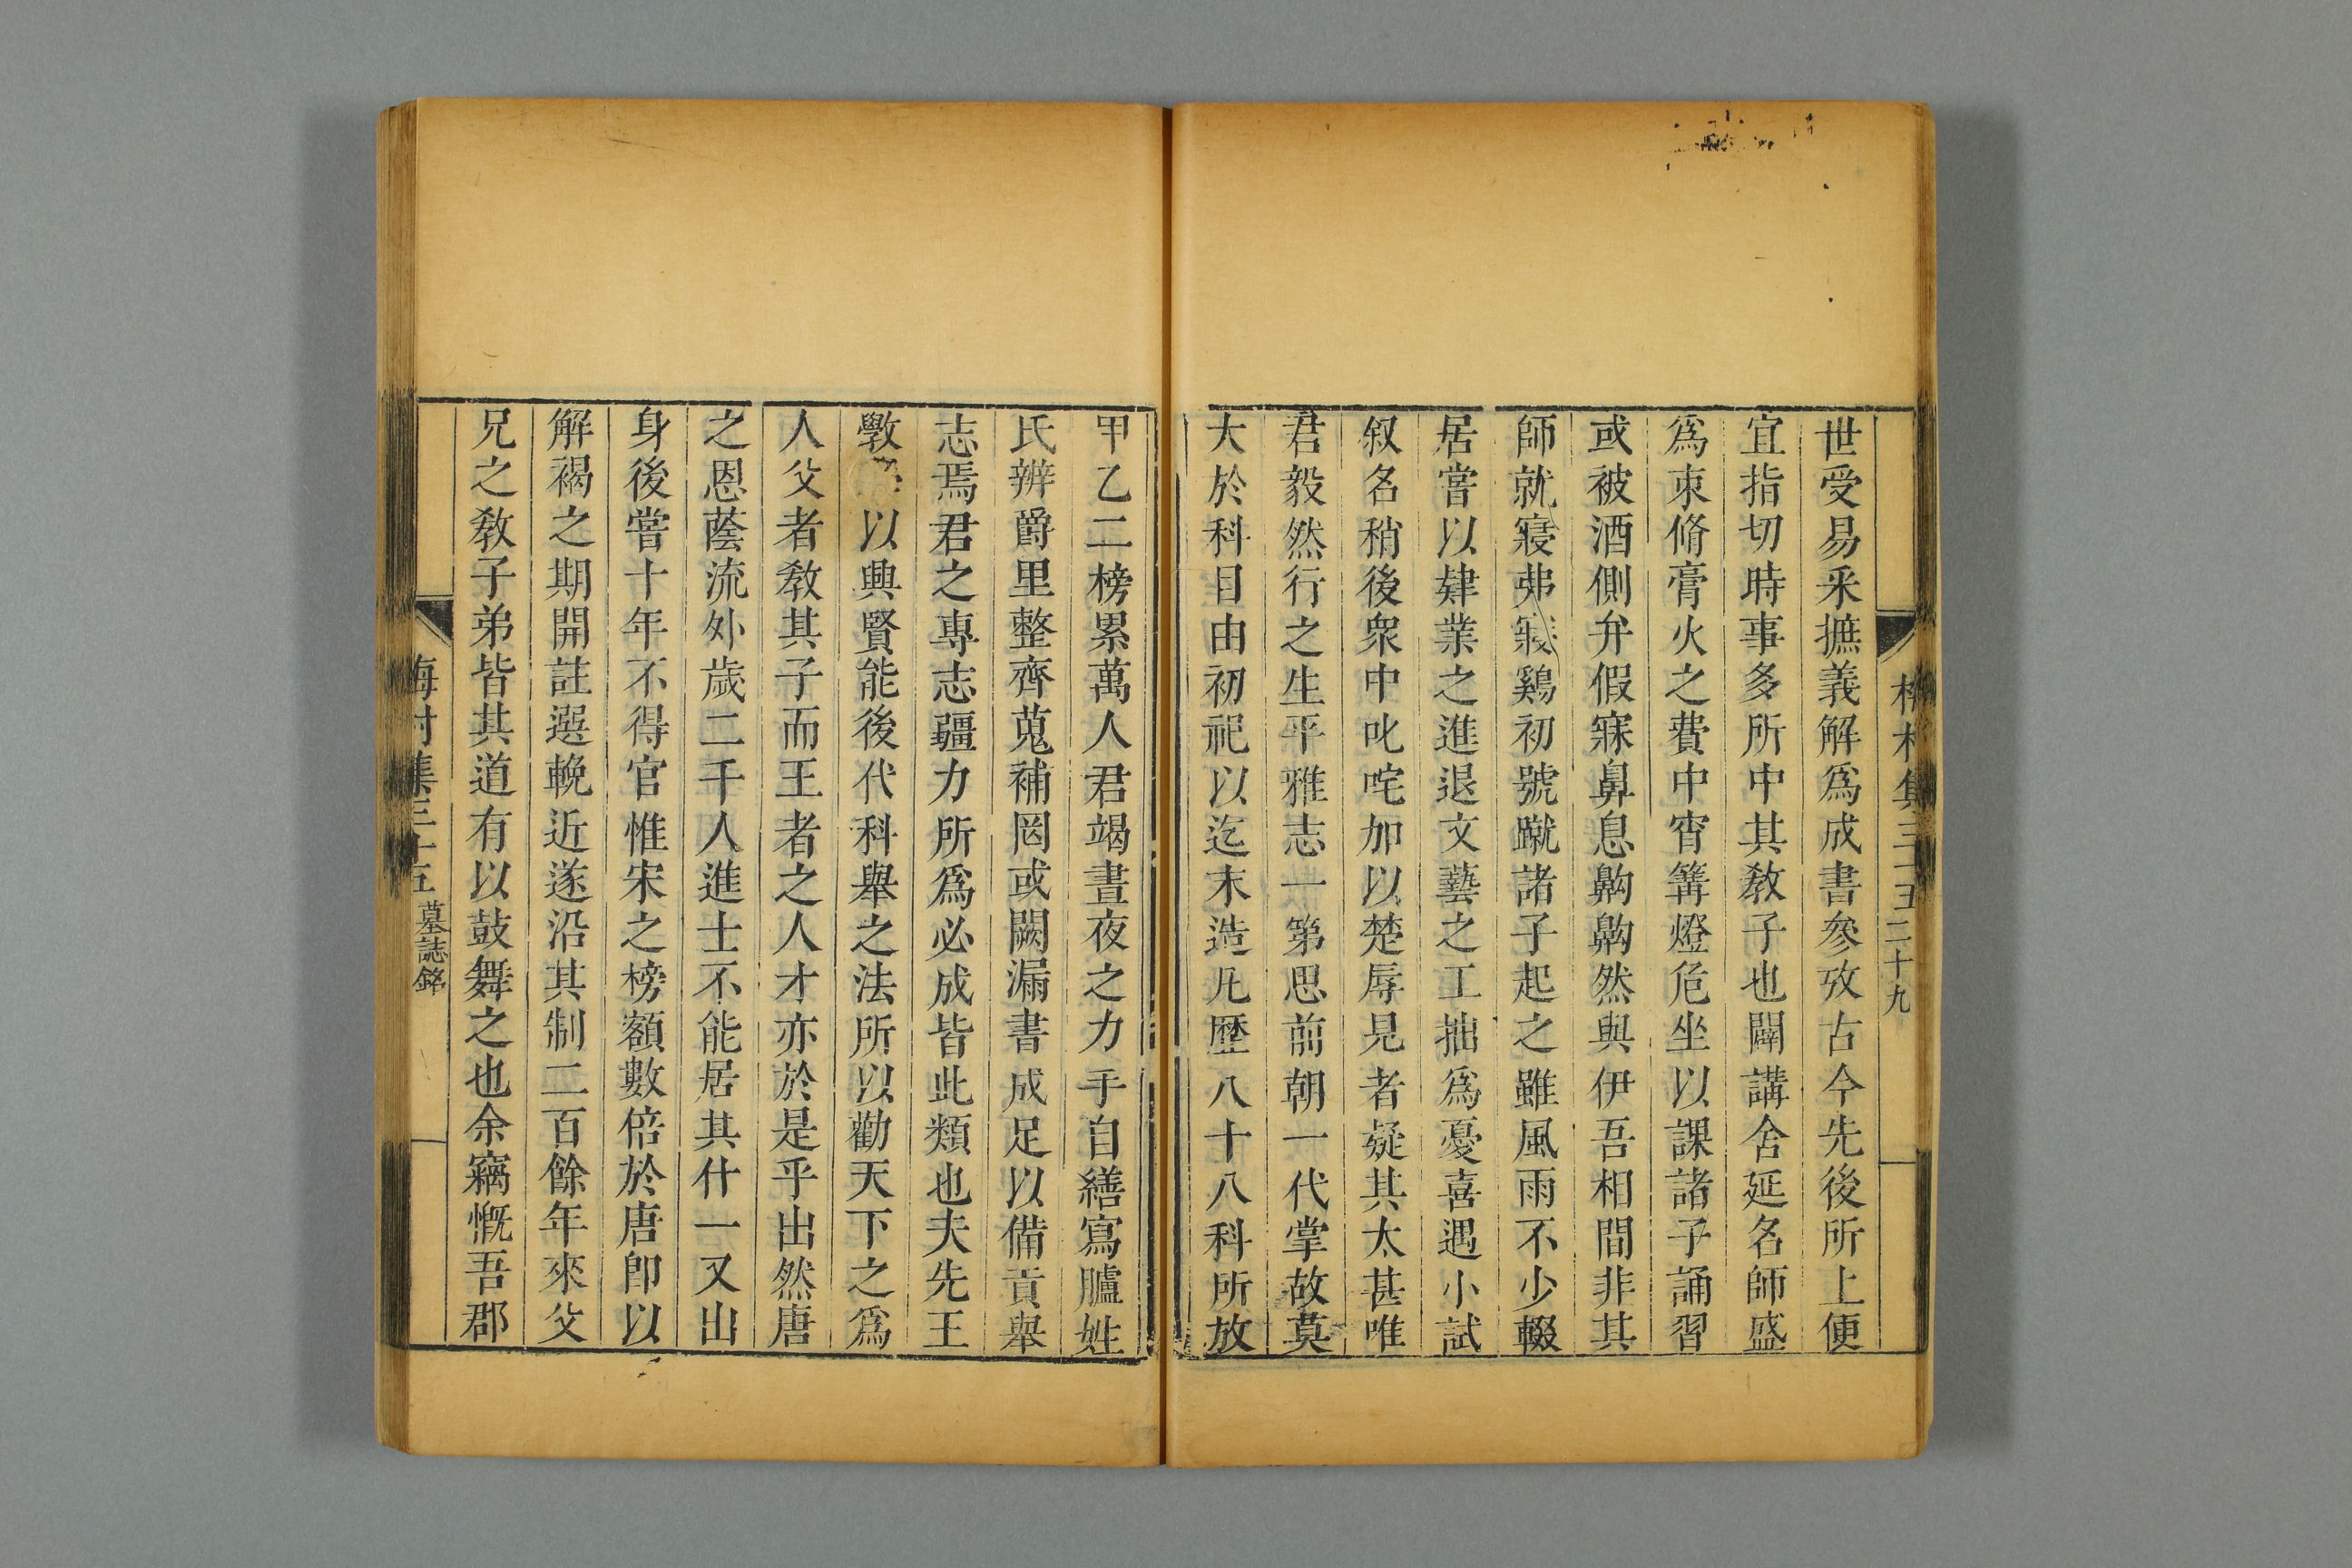 梅村集三十五 二十九
世受易釆摭義解爲成書參攷古今先後所上便
宜指切時事多所中其敎子也闢講舍延名師盛
爲束脩膏火之費中宵篝燈危坐以課諸子誦習
或被酒側弁假寐鼻息齁齁然與伊吾相間非其
師就寢弗寢鷄初號蹴諸子起之雖風雨不少輟
居嘗以肄業之進退文藝之工拙爲憂喜遇小試
叙名稍後衆中叱咤加以楚辱見者疑其太甚唯
君毅然行之生平雅志一第思前朝一代掌故莫
大於科目由初祀以迄末造凡歷八十八科所放
甲乙二榜累萬人君竭晝夜之力手自繕寫臚姓
氏辨爵里整齊蒐補罔或闕漏書成足以備貢舉
志焉君之專志疆力所爲必成皆此類也夫先王
斅以興賢能後代科舉之法所以勸天下之爲
人父者敎其子而王者之人才亦於是乎出然唐
之恩蔭流外歲二千人進士不能居其什一又出
身後嘗十年不得官惟宋之榜額數倍於唐卽以
解褐之期開註選輓近遂沿其制二百餘年來父
兄之敎子弟皆其道有以鼓舞之也余竊慨吾郡
梅村集三十五 墓誌銘